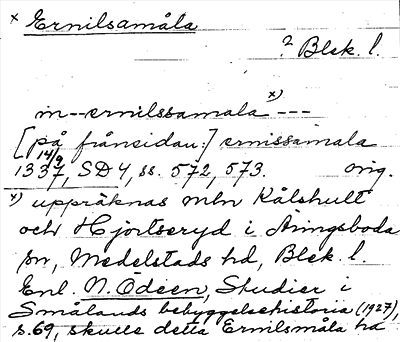 x Ernilsamåla
? Blek. l.
m--ernilssamala x) ---
[på frånsidan:] ernissamala
14/9 1337, SD 4, ss. 572, 573. orig.
x) uppräknas mln Kålshult
och Hjortseryd i Åringsboda
sn, Medelstads hd, Blek. l.
Enl. N. Ödeen, Studier i
Smålands bebyggelsehistoria (1927),
s. 69, skulle detta Ernilsmåla ha